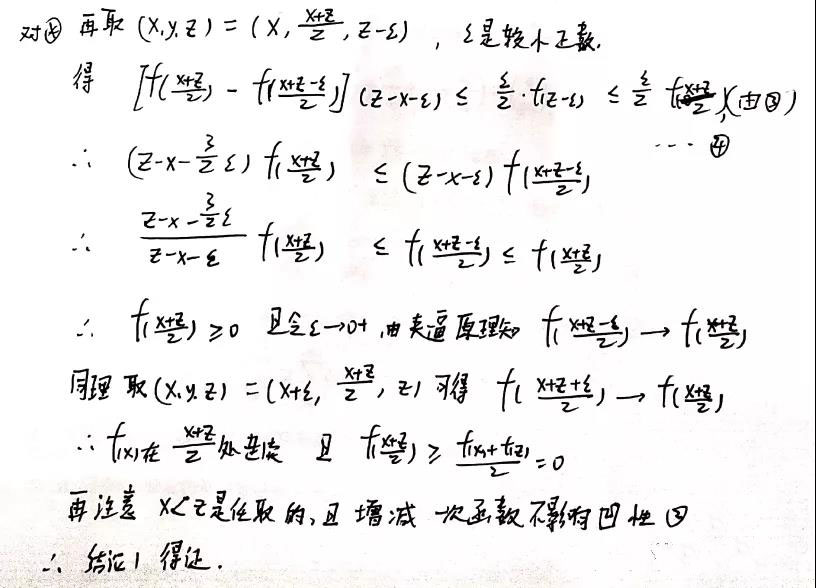 对④ 再取 (x,y,z) = (x, \frac{x+z}{2}, z-ε) , ε是较小正数.
得 [f(\frac{x+z}{2}) - f(\frac{x+z-ε}{2})] (z-x-ε) ≤ \frac{ε}{2}·f(z-ε) ≤ \frac{ε}{2} f(\frac{x+z}{2}) (由③)
···· ④
∴ (z-x-\frac{3}{2}ε) f(\frac{x+z}{2}) ≤ (z-x-ε) f(\frac{x+z-ε}{2})
∴ \frac{z-x-\frac{3}{2}ε}{z-x-ε} f(\frac{x+z}{2}) ≤ f(\frac{x+z-ε}{2}) ≤ f(\frac{x+z}{2})
∴ f(\frac{x+z}{2}) ≥ 0 且令ε→0+, 由夹逼原理知 f(\frac{x+z-ε}{2}) → f(\frac{x+z}{2})
同理 取(x,y,z) = (x+ε, \frac{x+z}{2}, z) 可得 f(\frac{x+z+ε}{2}) → f(\frac{x+z}{2})
∴ f(x)在 \frac{x+z}{2} 处连续 且 f(\frac{x+z}{2}) ≥ \frac{f(x)+f(z)}{2} = 0
再注意 x<z是任取的, 且 增减 一次函数不影响凹性③
∴ 结论1 得证.